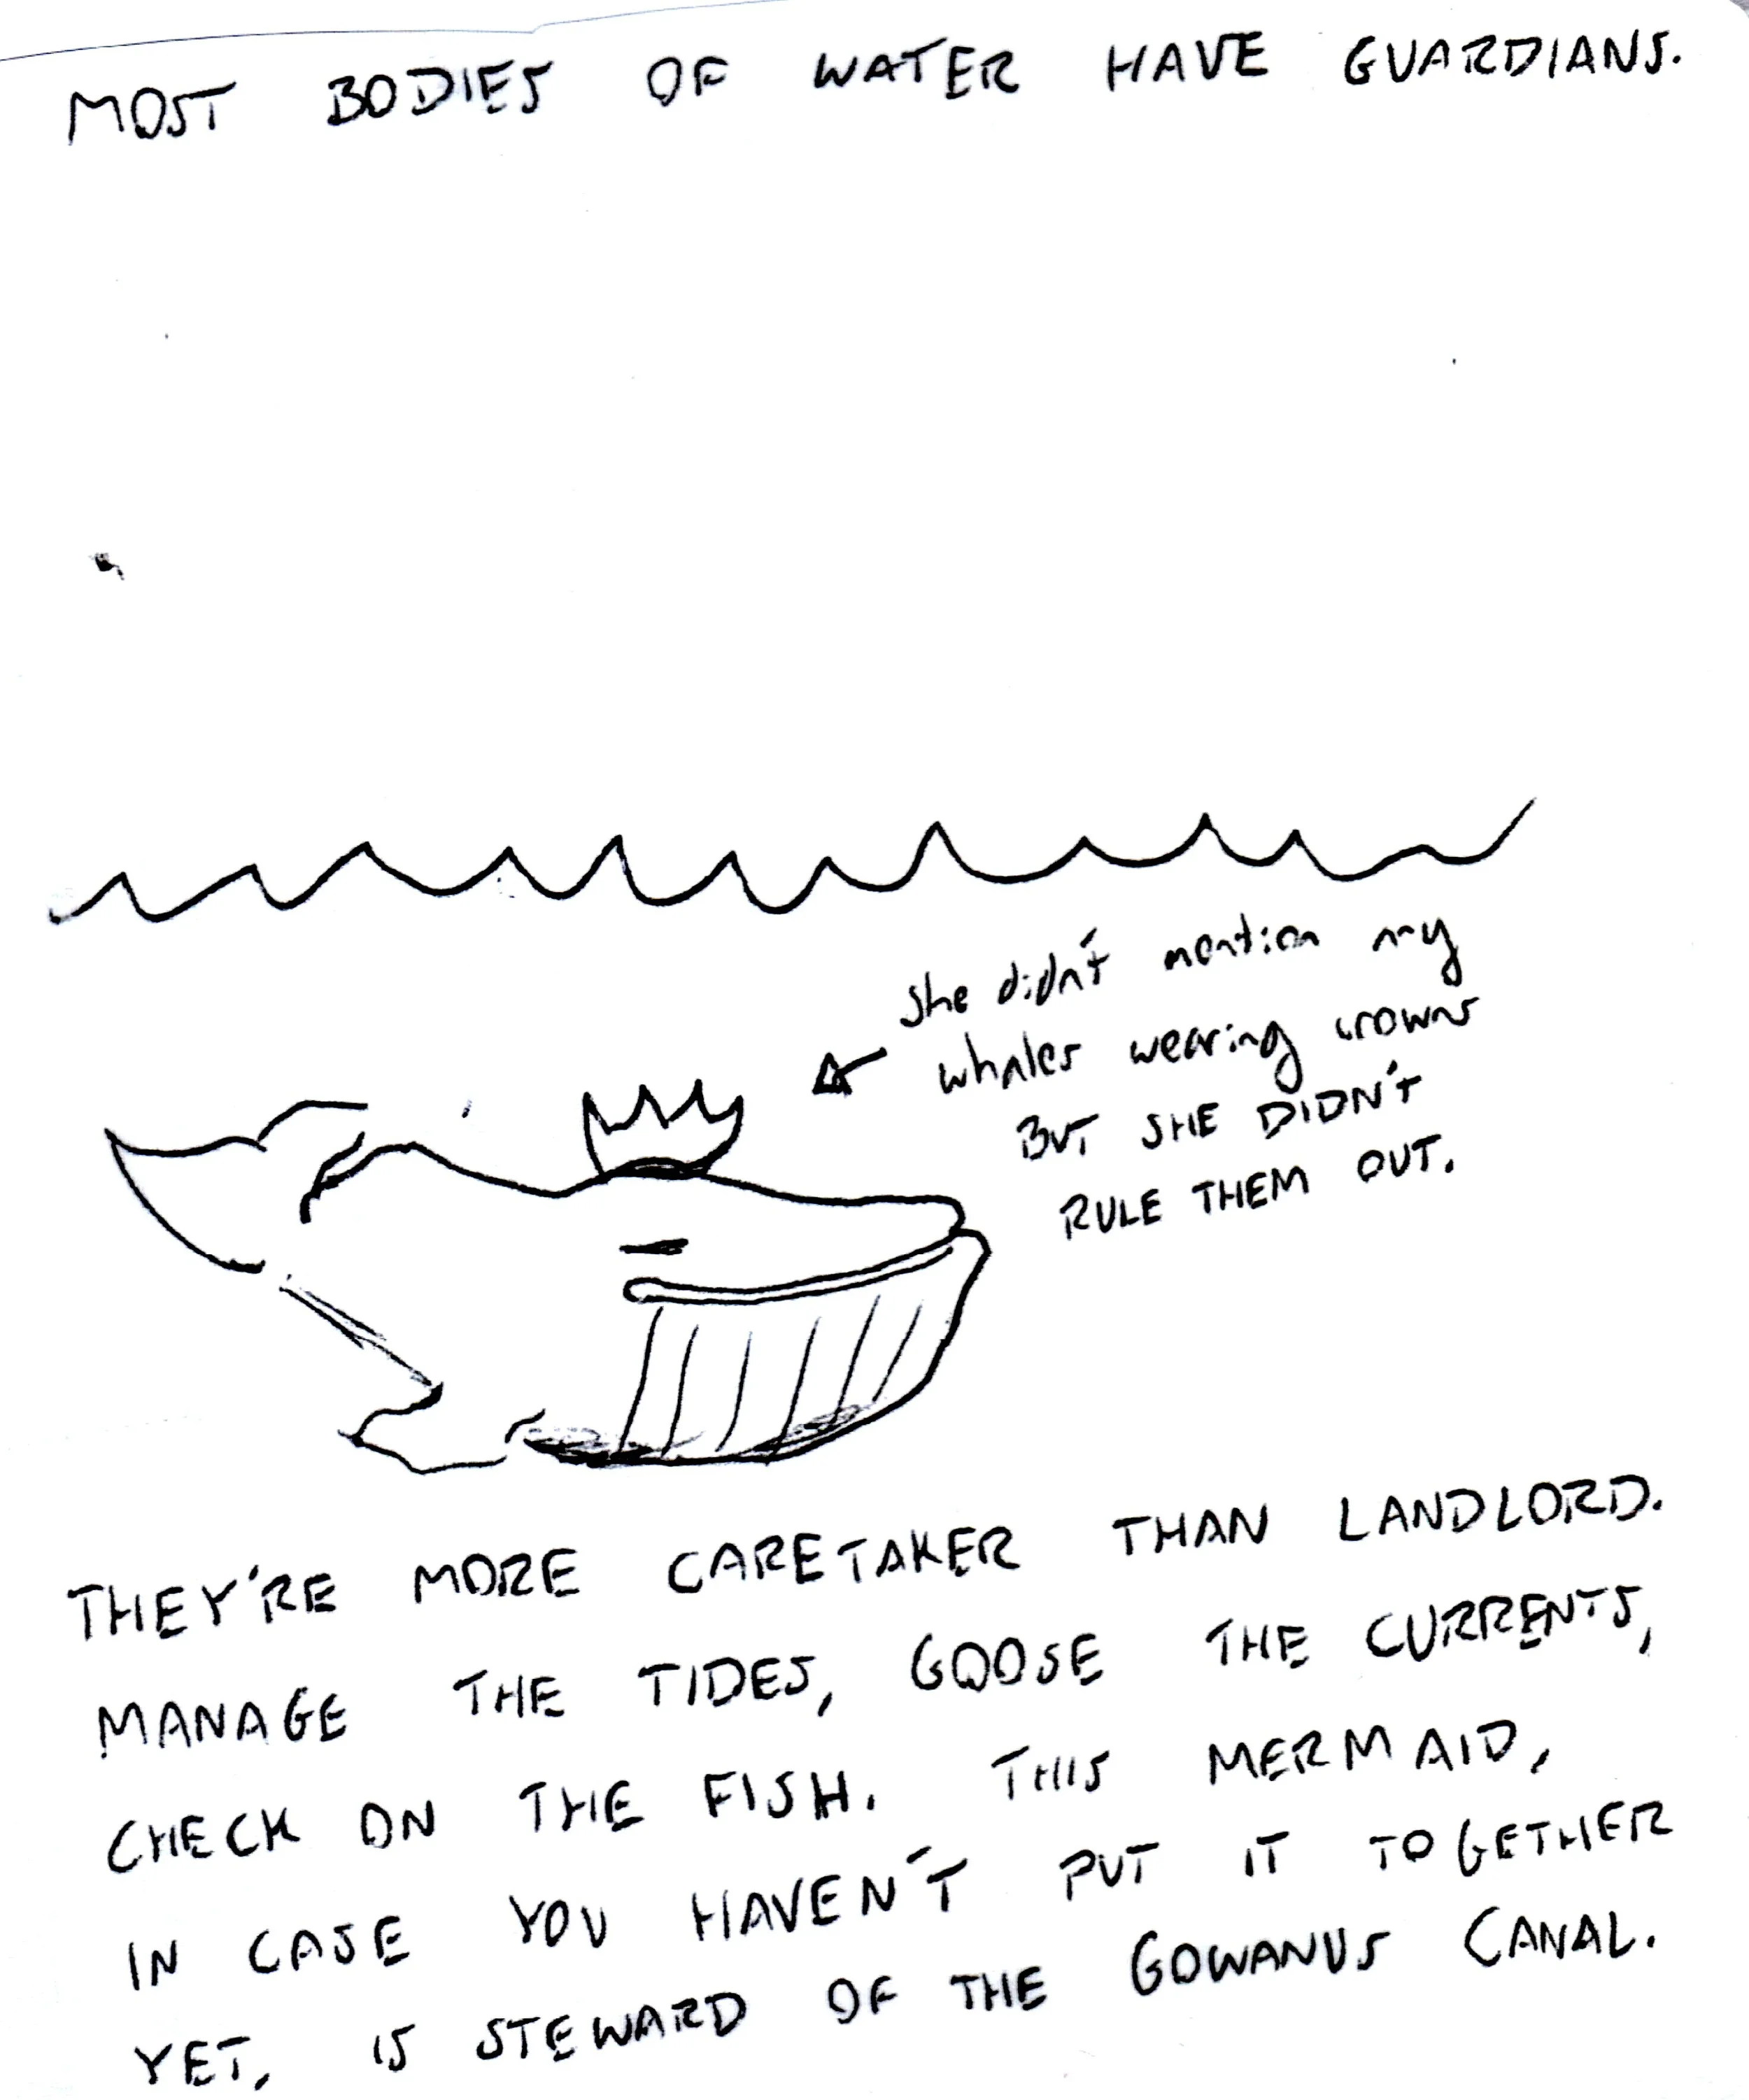 MOST BODIES OF WATER HAVE GUARDIANS.
She didn't mention any
whales wearing crowns
BUT SHE DIDN'T
RULE THEM OUT.
THEY'RE MORE CARETAKER THAN LANDLORD.
MANAGE THE TIDES, GOOSE THE CURRENTS,
CHECK ON THE FISH. THIS MERMAID,
IN CASE YOU HAVEN'T PUT IT TOGETHER
YET, IS STEWARD OF THE GOWANUS CANAL.